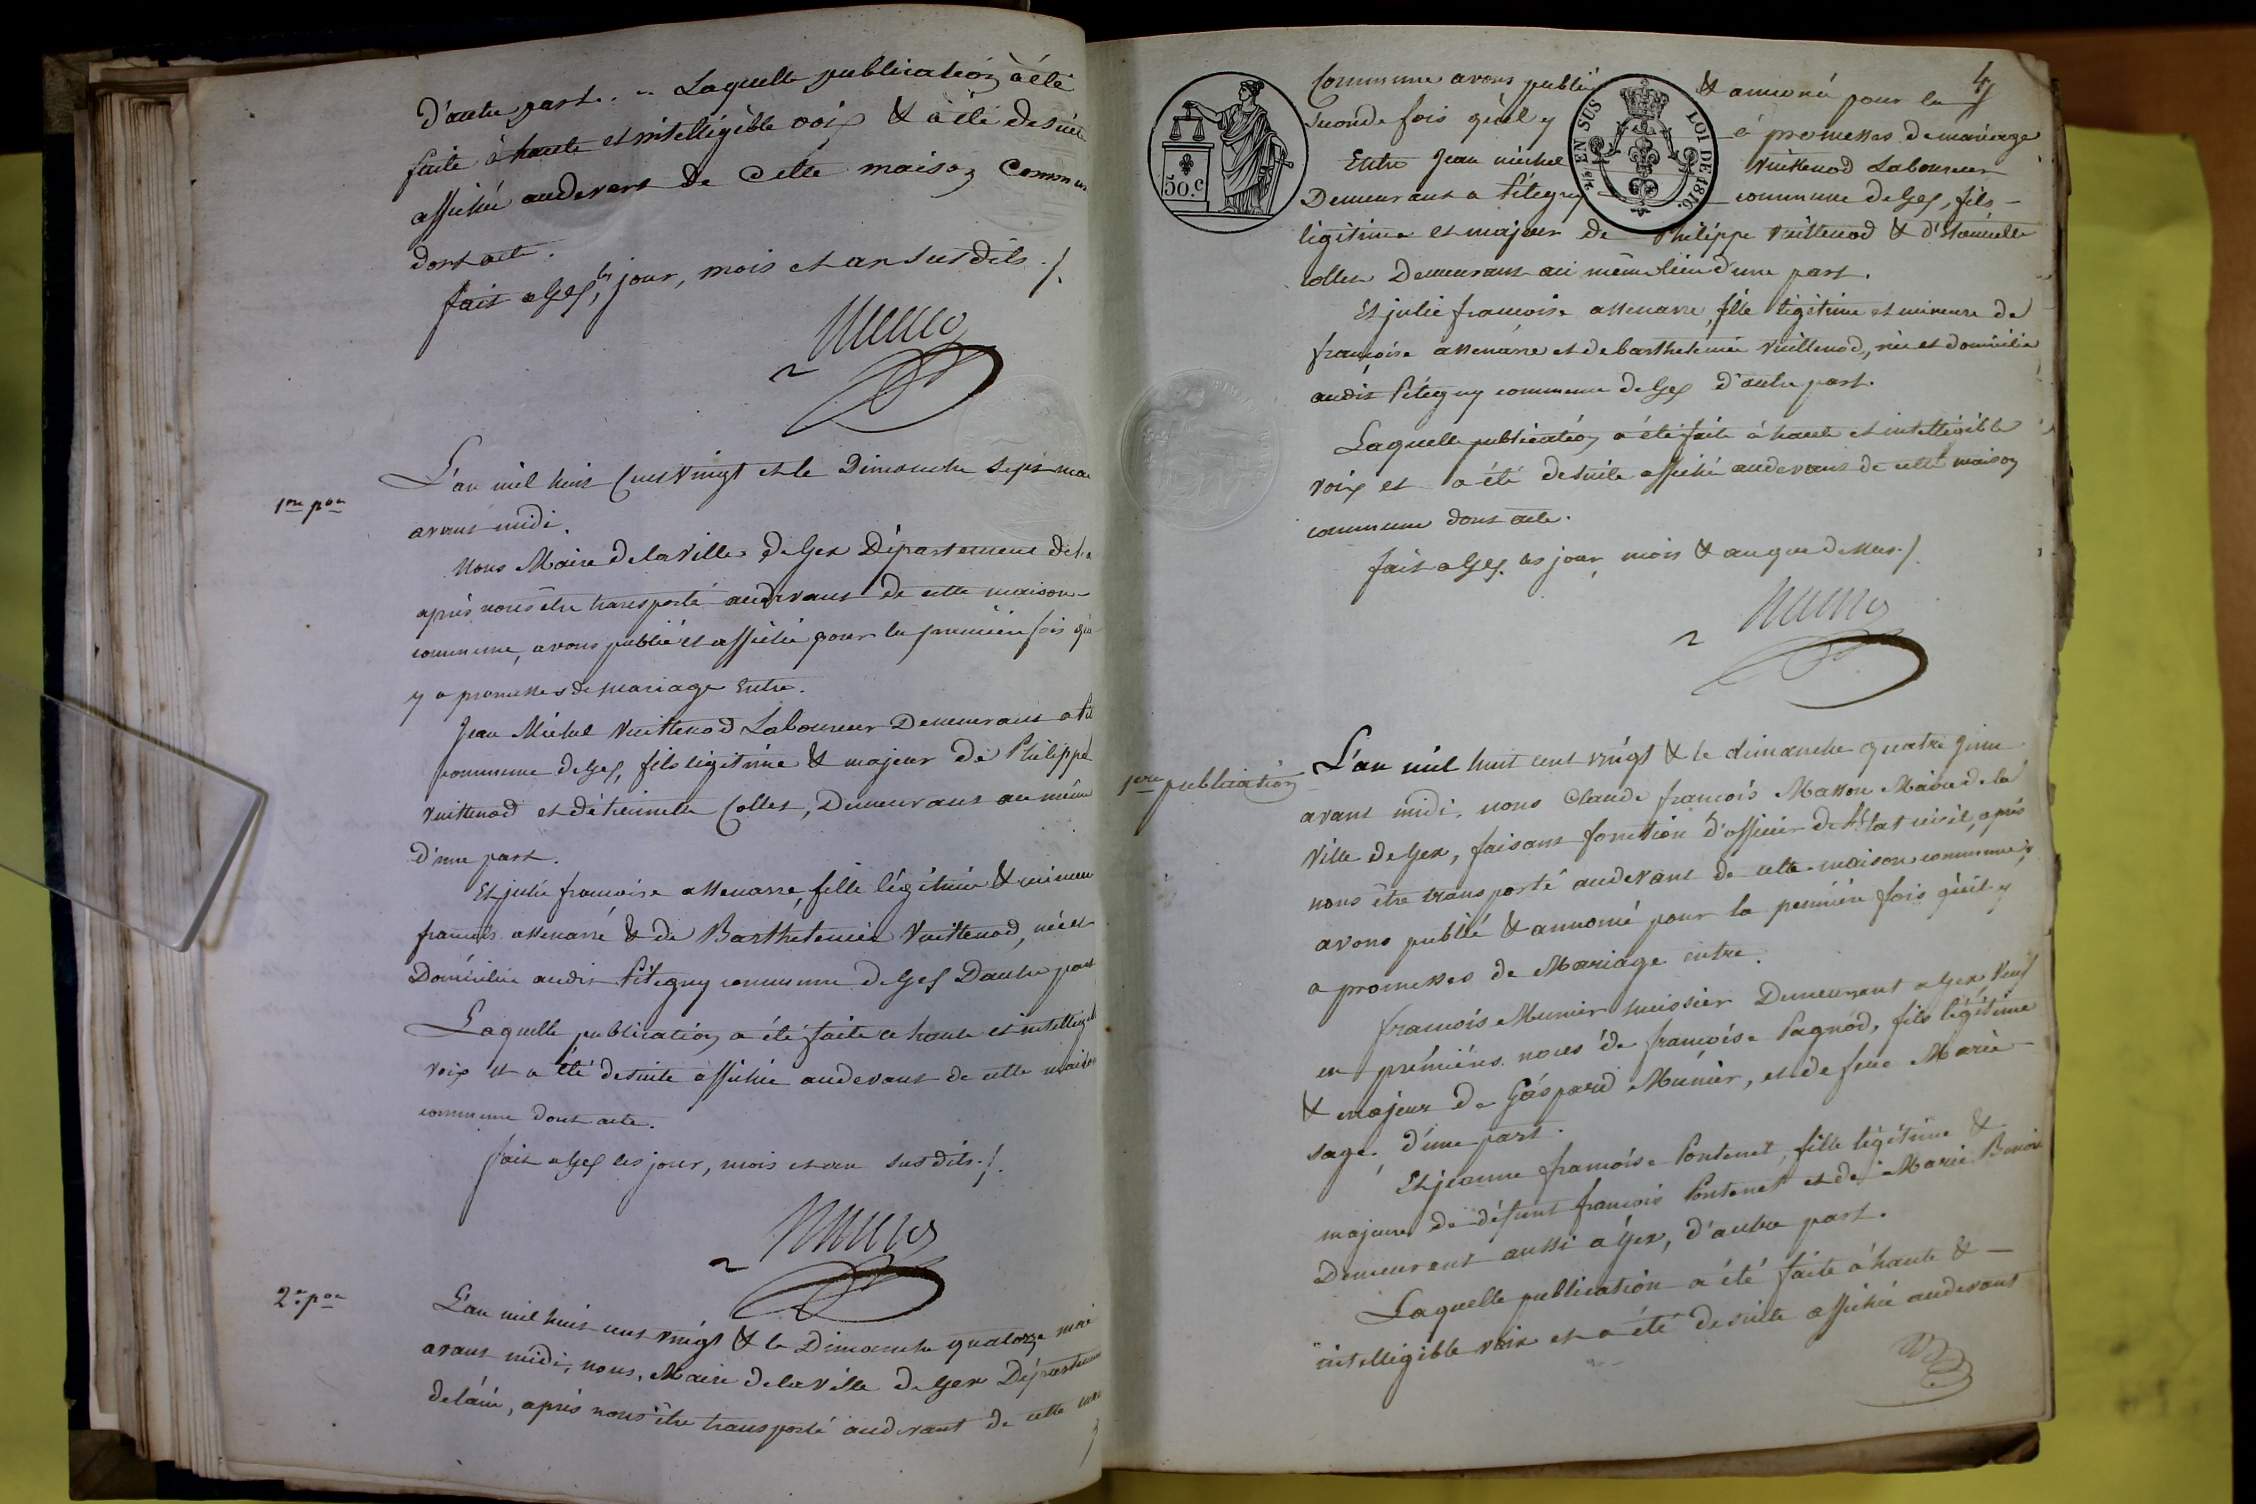 d'autre part. .. Laquelle publication à été
faite à haute et intelligible voix & à été desuite
affichée audevant de Cette maison Commun
dont acte.
fait a Gex, les jour, mois et an susdits ./.
1re pon
L'an mil huit Cent Vingt et le Dimanche Sept mai
avant midi.
Nous Maire de la Ville de Gex Département de l'a
après nous être transporté audevant de cette maison
commune, avons publié et affiché pour la première fois qu'
y a promesses de mariage Entre.
Jean Michel Vuittenod Laboureur Demeurant a Pit
commune de Gex, fils légitime & majeur de Philippe
Vuittenod et d'étiennette Collet, Demeurans au même
D'une part.
Et julie francoise assenarre, fille légitime & mineu
francois assenarré & de Barthelemie Vuittenod, née et
Domiciliée audit Pitegny commune de Gex Dautre part
Laquelle publication a été faite a haute et intelligi
voix et a été desuite affichée audevant de cette maison
commune dont acte.
fait a Gex les jour, mois et an susdits ./.
2e pon
L'an mil huit cent vingt & le Dimanche quatorze mai
avant midi, nous, Maire de la Ville de Gex Départemen
de l'ain, après nous être transporté audevant de cette mai
4
Commune avons publié & annoncé pour la
Seconde fois qu'il y a promesses de mariage
Entre Jean michel Vuittenod Laboureur
Demeurant a Pitegny commune de Gex, fils
légitime et majeur de Philippe Vuittenod & d'Etiennette
collet Demeurant au même lieu d'une part.
Et julie francoise assenarre, fille légitime et mineure de
françoise assenarre et de barthelemie Vuittenod, née et domiciliée
audit Pitegny commune de Gex d'autre part.
Laquelle publication a été faite à haute et intelligible
voix et a été desuite affiché audevant de cette maison
commune dont acte.
fait a Gex les jour, mois & an que dessus ./.
50.C
2/5 EN SUS LOI DE 1816.
1ere publication
L'an mil huit cent vingt & le dimanche quatre Juin
avant midi, nous Claude francois Masson Maire de la
Ville de Gex, faisant fonction d'officier de l'Etat civil, après
nous être transporté audevant de cette maison commune,
avons publié & annoncé pour la première fois qu'il y
a promesses de Mariage entre.
francois Munier huissier Demeurant a Gex, Veuf
en premières noces de françoise Pagnod, fils légitime
& majeur de Gaspard Munier, et de feue Marie
sage, d'une part.
Et jeanne francoise Pontenet, fille légitime &
majeure de défunt francois Pontenet et de Marie Benoit
Demeurant aussi a Gex, d'autre part.
Laquelle publication a été faite à haute &
intelligible voix et a été desuite affichée audevant